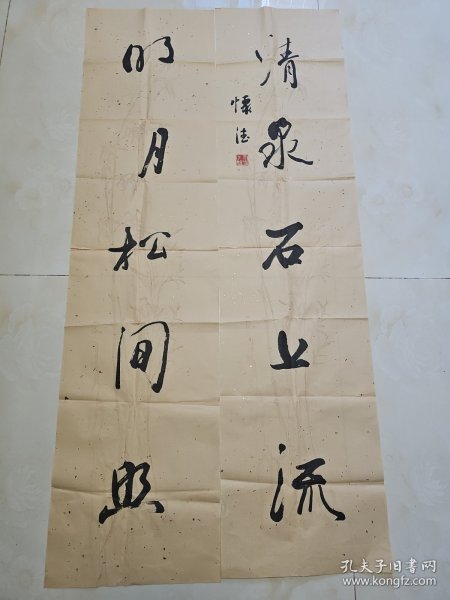 明月松间照
清泉石上流
懷德
孔夫子旧书网
www.kongfz.com